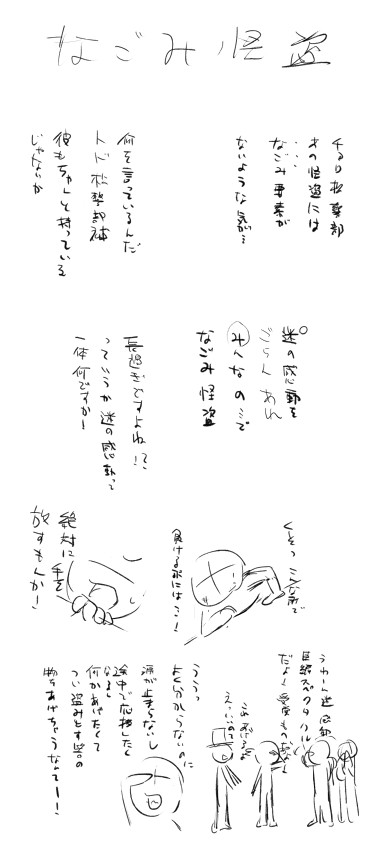 なごみ怪盗
チョロ松警部
あの怪盗には
なごみ要素が
ないような気が…
何を言っているんだ
トド松警部補
彼もちゃんと持っている
じゃないか
謎の感動を
ごらんあれ
みんなの
なごみ怪盗
長過ぎですよね!?
っていうか謎の感動って
一体何ですか!
くそっ こんな所で
負ける訳には…!
絶対に手を
放すもんか!
うわーん
巨編スペクタクル
だよ!
えっいいの?
ううっ
よく分からないのに
涙が止まらないし
途中で応援したく
なるし
何かあげたくて
つい盗みとす筈の
物をあげちゃうなんてー!